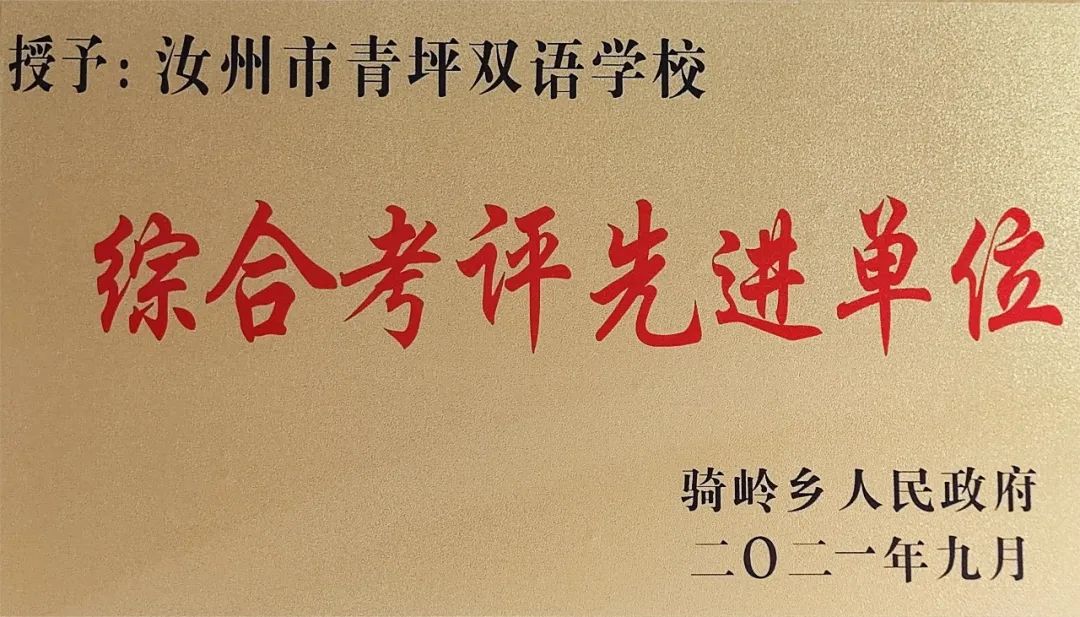 授予：汝州市青坪双语学校
综合考评先进单位
骑岭乡人民政府
二〇二一年九月